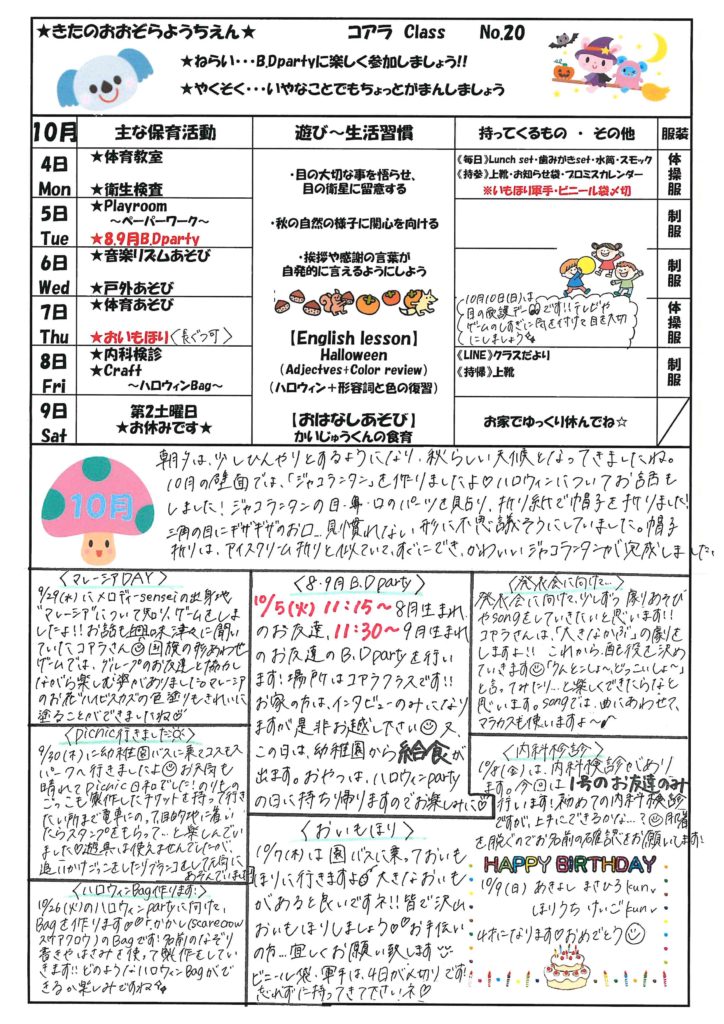 ★きたのおおぞらようちえん★ コアラ Class No.20
★ねらい・・・B.Dpartyに楽しく参加しましょう!!
★やくそく・・・いやなことでもちょっとがまんしましょう
10月 主な保育活動 遊び～生活習慣 持ってくるもの ・ その他 服装
4日 Mon
★体育教室
★衛生検査
《毎日》Lunch set・歯みがきset・水筒・スモック
《持参》上靴・お知らせ袋・プロミスカレンダー
※いもほり軍手・ビニール袋〆切
体操服
5日 Tue
★Playroom
～ペーパーワーク～
★8.9月B.Dparty
制服
6日 Wed
★音楽リズムあそび
★戸外あそび
制服
7日 Thu
★体育あそび
★おいもほり〈長ぐつ可〉
体操服
8日 Fri
★内科検診
★Craft
～ハロウィンBag～
《LINE》クラスだより
《持帰》上靴
制服
9日 Sat
第2土曜日
★お休みです★
お家でゆっくり休んでね☆
・目の大切な事を悟らせ、
目の衛星に留意する
・秋の自然の様子に関心を向ける
・挨拶や感謝の言葉が
自発的に言えるようにしよう
【English lesson】
Halloween
(Adjectves+Color review)
(ハロウィン＋形容詞と色の復習)
【おはなしあそび】
かいじゅうくんの食育
10月10日(日)は
目の愛護デーです!!テレビや
ゲームのしすぎに気を付けて目を大切
にしましょう
10月
朝夕は、少しひんやりとするようになり、秋らしい天候となってきましたね。
10月の壁面では、「ジャコランタン」を作りましたよ♡ハロウィンについてお話も
しました!ジャコランタンの目・鼻・口のパーツを貼り、折り紙で帽子を折りました!
三角の目にギザギザのお口…見慣れない形に不思議そうにしていました。帽子
折りは、アイスクリーム折りと似ていて、すぐにでき、かわいいジャコランタンが完成しました。
〈マレーシアDAY〉
9/29(水)にメロディーsenseiの出身地
"マレーシア"について知り、ゲームをしま
したよ!!お話を興味津々に聞い
ていたコアラさん☺国旗の形あわせ
ゲームでは、グループのお友達と協力し
ながら楽しむ姿がありました。マレーシア
のお花"ハイビスカス"の色塗りもきれいに
塗ることができましたね
〈Picnic行きました〉
9/30(木)に幼稚園バスに乗てコスモス
パークへ行きましたよ☺お天気も
晴れてPicnic日和でした!のりもの
ごっこも製作したチケットを持って行き
たい所まで電車にのって、目的地に着い
たらスタンプをもらって…と楽しんでい
ました♡遊具は使えませんでしたが、
追いかけっこをしたりブランコをして元気に
あそんでいました
〈ハロウィンBag作ります〉
10/26(火)のハロウィンpartyに向けて、
Bagを作ります♡♡かかし(scarecrow
スケアクロウ)のBagです!名前のなぞり
書きやはさみを使って製作をしてい
きます!!どのようなハロウィンBagがで
きるか楽しみですね
〈8・9月B.Dparty〉
10/5(火)11:15～8月生まれ
のお友達、11:30～9月生まれ
のお友達のB.Dpartyを行い
ます!場所はコアラクラスです!!
お家の方は、インタビューのみになり
ますが是非お越し下さい☺又、
この日は、幼稚園から給食が
出ます。おやつは、ハロウィンparty
の日に持ち帰りますのでお楽しみに♡
〈おいもほり〉
10/7(木)は園バスに乗っておいも
ほりに行きますよ 大きなおいも
があると良いですネ!!皆で沢山
おいもほりしましょう♡♡お手伝い
の方…宜しくお願い致します
ビニール袋、軍手は、4日が〆切りです!
忘れずに持ってきて下さいネ♡
〈発表会に向けて…〉
発表会に向けて、少しずつ劇あそび
やsongをしていきたいと思います!!
コアラさんは、「大きなかぶ」の劇を
しますよ!! これから、配役を決め
ていきます☺「うんとこしょ～、どっこいしょ～」
と言ってみたり…と楽しくできたらなと
思います。songでは、曲にあわせて、
マラカスも使いますよ～♪
〈内科検診〉
10/8(金)は、内科検診があり
ます。今回は1号のお友達のみ
行います!初めての内科検診
ですが、上手にできるかな…?☺服
を脱ぐのでお名前の確認をお願いします!
HAPPY BIRTHDAY
10/9(日) あきよし まさひろkun
ほりうち けいごkun
4才になります♡おめでとう☺